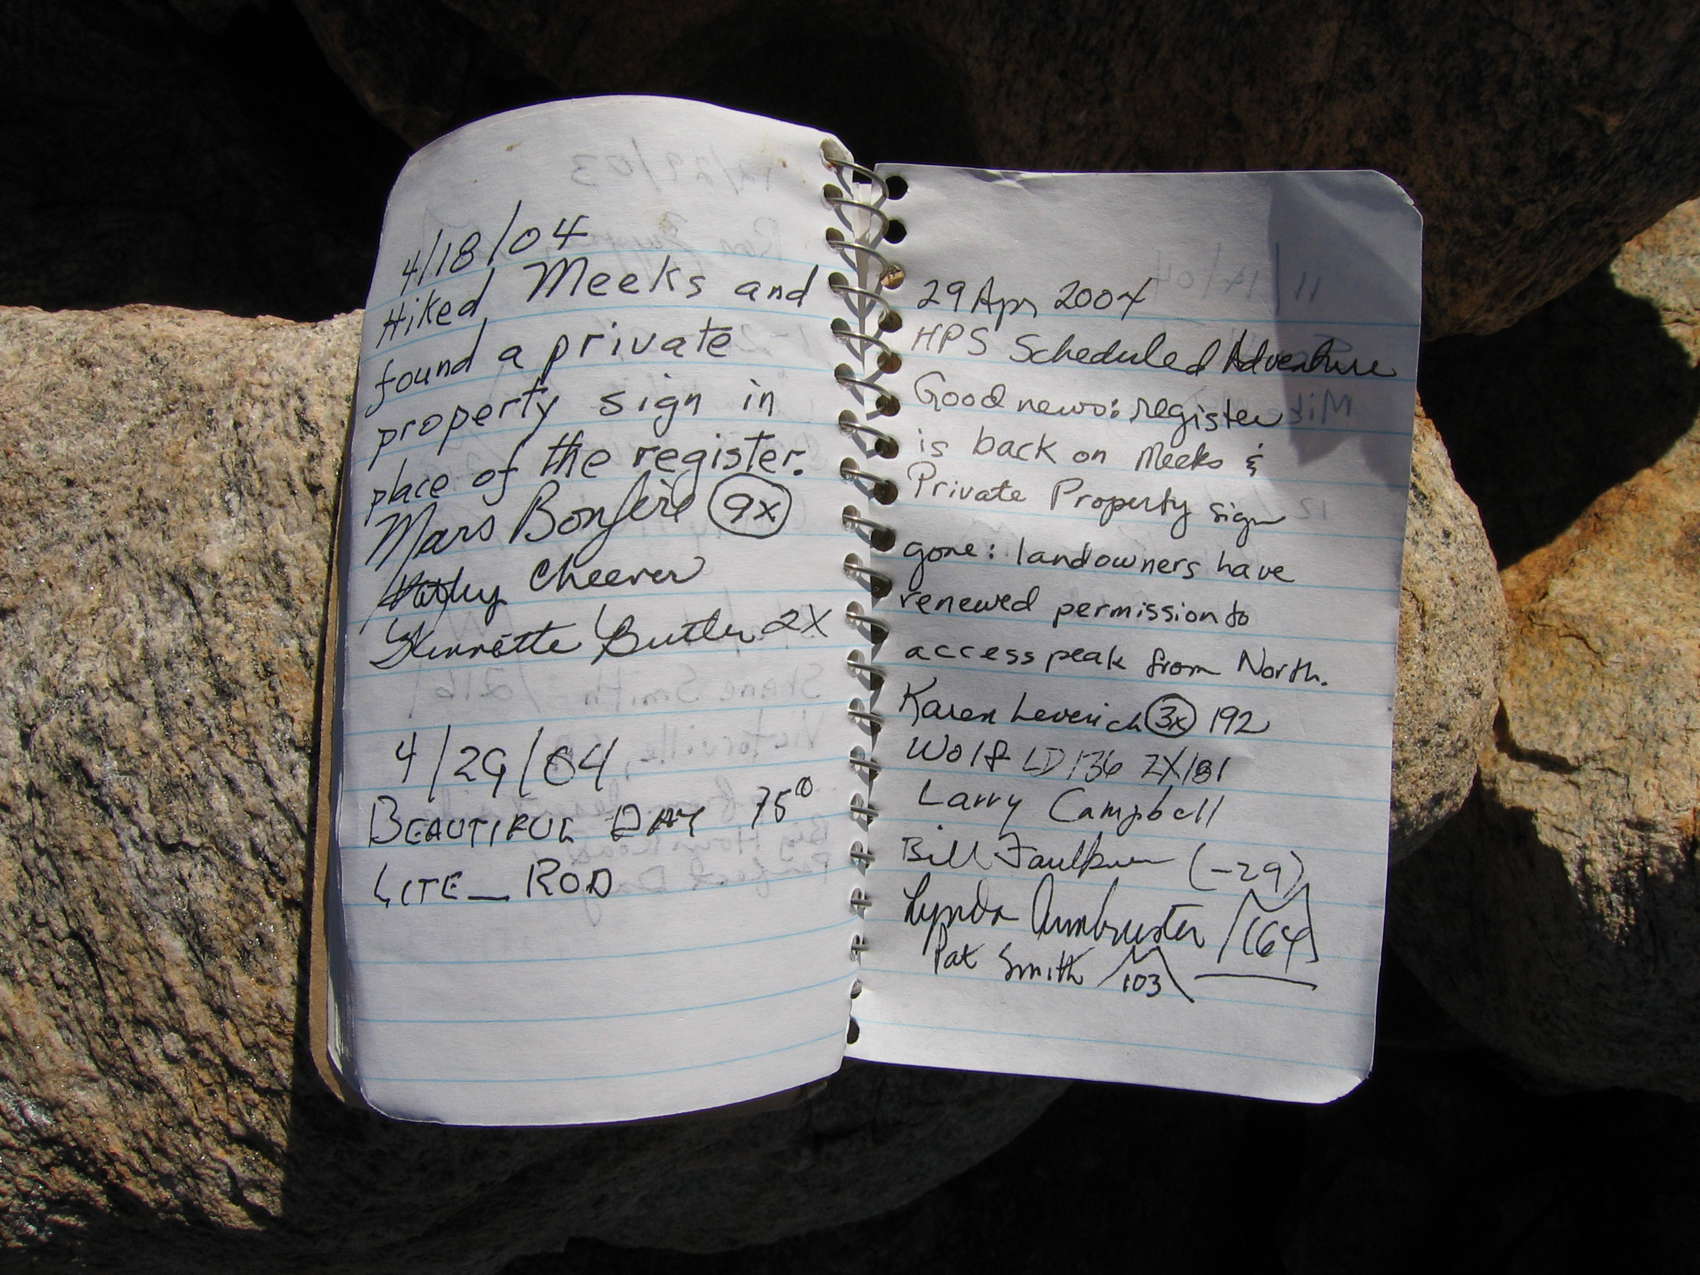 4/18/04
Hiked Meeks and
found a private
property sign in
place of the register.
Mars Bonfire 9x
Kathy Cheever
Butler 2X
4/29/04
BEAUTIFUL DAY 75°
LITE_ROD
29 Apr 2004
HPS Scheduled Adventure
Good news: register
is back on Meeks &
Private Property sign
gone: landowners have
renewed permission to
access peak from North.
Karen Leverich 3x 192
Wolf LD136 2X/81
Larry Campbell
Bill Faulkner (-29)
Lynda Armbruster 164
Pat Smith 103